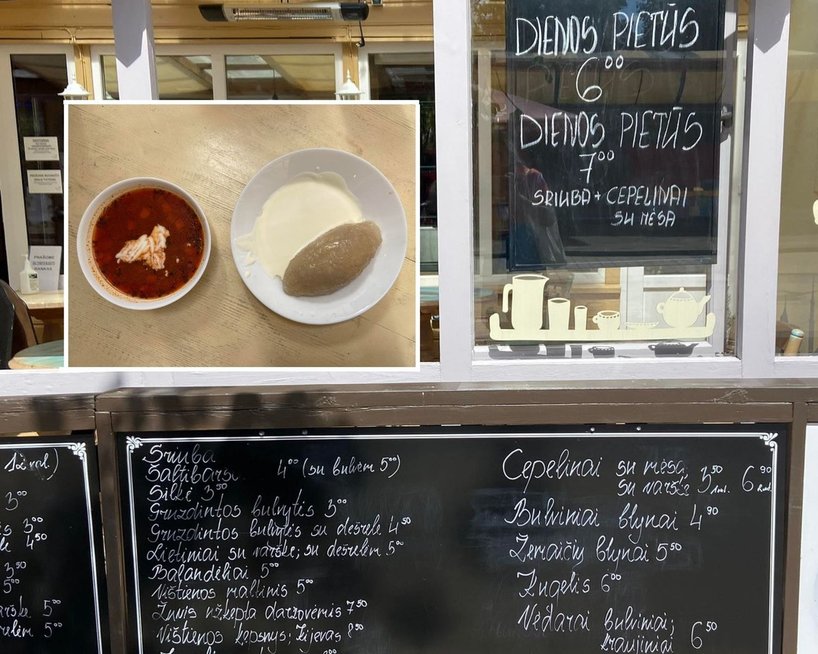 DIENOS PIETŪS
6⁰⁰
DIENOS PIETŪS
7⁰⁰
SRIUBA + CEPELINAI
SU MĖSA
Sriuba
Šaltibarsč 4⁰⁰ (su bulvėm 5⁰⁰)
Silkė 3⁵⁰
Gruzdintos bulvytės 3⁰⁰
Gruzdintos bulvytės su dešrele 4⁵⁰
Lietiniai su varške; su dešrelėm 5⁰⁰
Balandėliai 5⁰⁰
Vištienos maltinis 5⁰⁰
Žuvis užkepta daržovėmis 7⁵⁰
Vištienos kepsnys; Kijevas 8⁵⁰
Cepelinai su mėsa,
su varške 3⁵⁰ 6⁹⁰
Bulviniai blynai 4⁹⁰
Žemaičių blynai 5⁵⁰
Kugelis 6⁰⁰
Vėdarai bulviniai;
kraujiniai 6⁵⁰
3⁰⁰
3⁰⁰
4⁵⁰
3⁵⁰
5⁰⁰
5⁰⁰
5⁰⁰